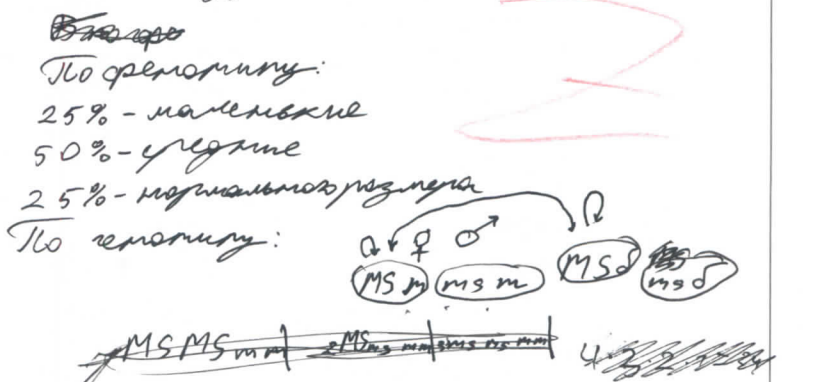 По фенотипу:
25% - маленькие
50% - средние
25% - нормального размера
По генотипу:
♀ ♂
MS m ms m MS♂ ms♂
MSMS mm MSms mm msms mm
4